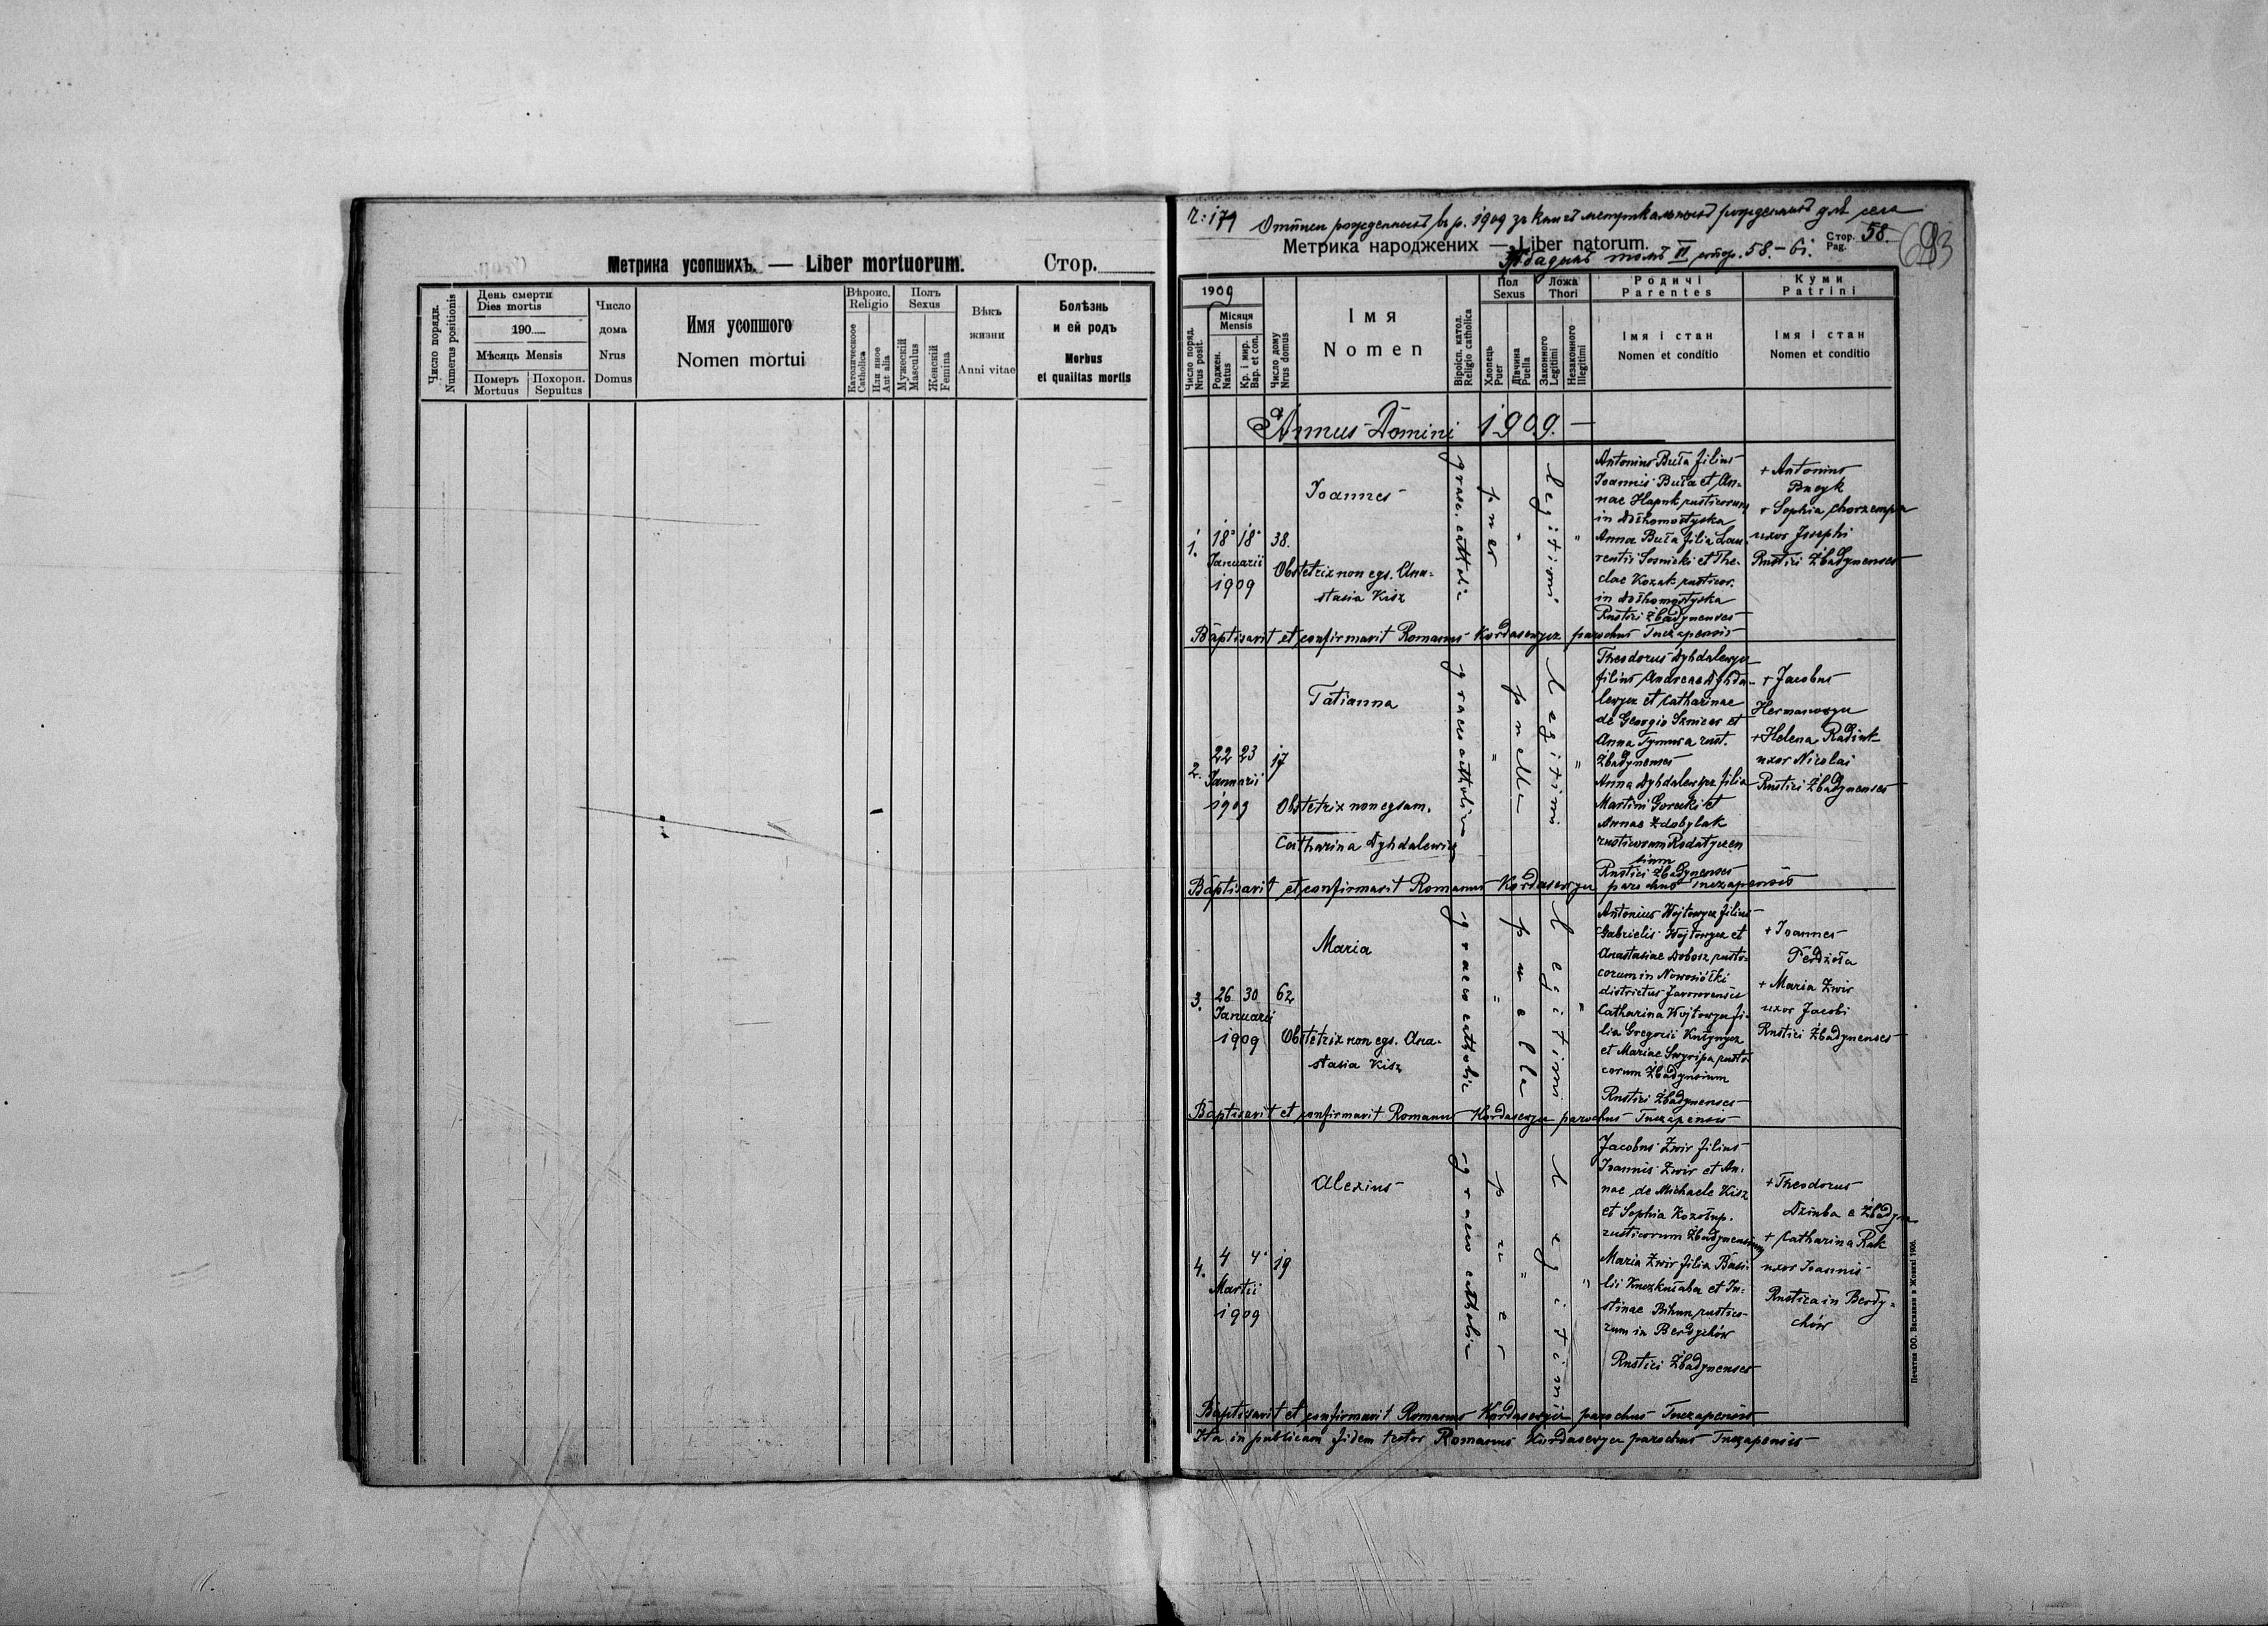 Метрика усопшихъ. — Liber mortuorum.
Стор.
Число порядк.
Numerus positionis
День смерти
Dies mortis
190
Мѣсяць Mensis
Померъ
Mortuus
Похорон.
Sepultus
Число
дома
Nrus
Domus
Имя усопшого
Nomen mortui
Вѣроис.
Religio
Католическое
Catholica
Или иное
Aut alia
Полъ
Sexus
Мужескій
Masculus
Женскій
Femina
Вѣкъ
жизни
Anni vitae
Болѣзнь
и ей родъ
Morbus
et qualitas mortis
ч: 179
Метрика народжених — Liber natorum.
Стор.
Pag.
58.
томъ II стор. 58.-61.
1909
Число поряд.
Nrus posit.
Місяця
Mensis
Роджен.
Natus
Кр. і мир.
Bap. et con.
Число дому
Nrus domus
Імя
Nomen
Віроісп. катол.
Religio catholica
Пол
Sexus
Хлопець
Puer
Дівчина
Puella
Ложа
Thori
Законного
Legitimi
Незаконного
Illegitimi
Родичі
Parentes
Імя і стан
Nomen et conditio
Куми
Patrini
Імя і стан
Nomen et conditio
Annus Domini 1909. —
1.
18 18
Januarii
1909
38.
Joannes
Obstetrix non egs. Ana-
stasia Kisz
graec. catholic
puer
legitimi
Antonius Buła filius
Joannis Buła et An-
nae Hapuk rusticorum
in
Anna Buła filia Lau-
rentii Sosnicki et The-
clae Kozak rusticor.
in
Rustici Żbadynenses
+ Antonius
+ Sophia Chorzempa
uxor Josephi
Rustici Żbadynenses
Baptisavit et confirmavit Romanus Kordasewycz parochus Tuczapensis
2.
22 23
Januarii
1909
17
Tatianna
Obstetrix non egsam.
Catharina Dyhdalewicz
graeco catholica
puella
legitimi
Theodorus Dyhdalewycz
filius Andreae Dyhda-
lewycz et Catharinae
de Georgio et
Anna rust.
Żbadynenses
Anna Dyhdalewycz filia
Martini Gorecki et
Annae Zdobylak
rusticorum Rodatyczen
sium
Rustici Żbadynenses
+ Jacobus
Hermanowycz
+ Helena
uxor Nicolai
Rustici Żbadynenses
Baptisavit et confirmavit Romanus Kordasewycz parochus Tuczapensis
3.
26 30
Januarii
1909
62
Maria
Obstetrix non egs. Ana-
stasia Kisz
graeco catholic
puella
legitimi
Antonius Wojtowycz filius
Gabrielis Wojtowycz et
Anastasiae Dobosz rusti-
corum in Nowosiółki
districtus Javorovensis
Catharina Wojtowycz fi-
lia Gregorii
et Mariae rusti-
corum Żbadynsium
Rustici Żbadynenses
+ Joannes
+ Maria Zwir
uxor Jacobi
Rustici Żbadynenses
Baptisavit et confirmavit Romanus Kordasewycz parochus Tuczapensis
4.
4 4
Martii
1909
19
Alexius
graeco catholic
puer
legitimi
Jacobus Zwir filius
Joannis Zwir et An-
nae de Michaele Kisz
et Sophia
rusticorum Żbadynensium
Maria Zwir filia Basi-
lii et Ju-
stinae Bihun rustico-
rum in Berdychów
Rustici Żbadynenses
+ Theodorus
Dziuba e Żbadyn
+ Catharina Rak
uxor Joannis
Rustica in Berdy-
chów
Baptisavit et confirmavit Romanus Kordasewycz parochus Tuczapensis
Ita in publicam fidem testor Romanus Kordasewycz parochus Tuczapensis
Печатня ОО. Василиян в Жовкві 1906.